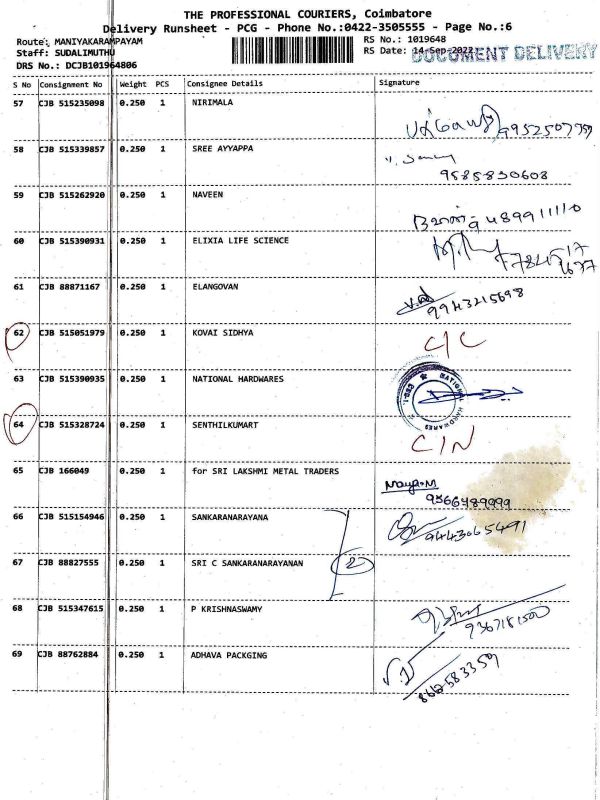 THE PROFESSIONAL COURIERS, Coimbatore
Delivery Runsheet - PCG - Phone No.:0422-3505555 - Page No.:6
Route: MANIYAKARAMPAYAM RS No.: 1019648
Staff: SUDALIMUTHU RS Date: 14-Sep-2022 DOCUMENT DELIVERY
DRS No.: DCJB101964806
S No Consignment No Weight PCS Consignee Details Signature
57 CJB 515235098 0.250 1 NIRIMALA
9952507759
58 CJB 515339857 0.250 1 SREE AYYAPPA
9585830608
59 CJB 515262920 0.250 1 NAVEEN
9489911110
60 CJB 515390931 0.250 1 ELIXIA LIFE SCIENCE
61 CJB 88871167 0.250 1 ELANGOVAN
9943215698
62 CJB 515051979 0.250 1 KOVAI SIDHYA
C/C
63 CJB 515390935 0.250 1 NATIONAL HARDWARES
NATIONAL HARDWARES
64 CJB 515328724 0.250 1 SENTHILKUMART
C/N
65 CJB 166049 0.250 1 for SRI LAKSHMI METAL TRADERS
9566489999
66 CJB 515154946 0.250 1 SANKARANARAYANA
9443065491
67 CJB 88827555 0.250 1 SRI C SANKARANARAYANAN
2
68 CJB 515347615 0.250 1 P KRISHNASWAMY
9367181500
69 CJB 88762884 0.250 1 ADHAVA PACKGING